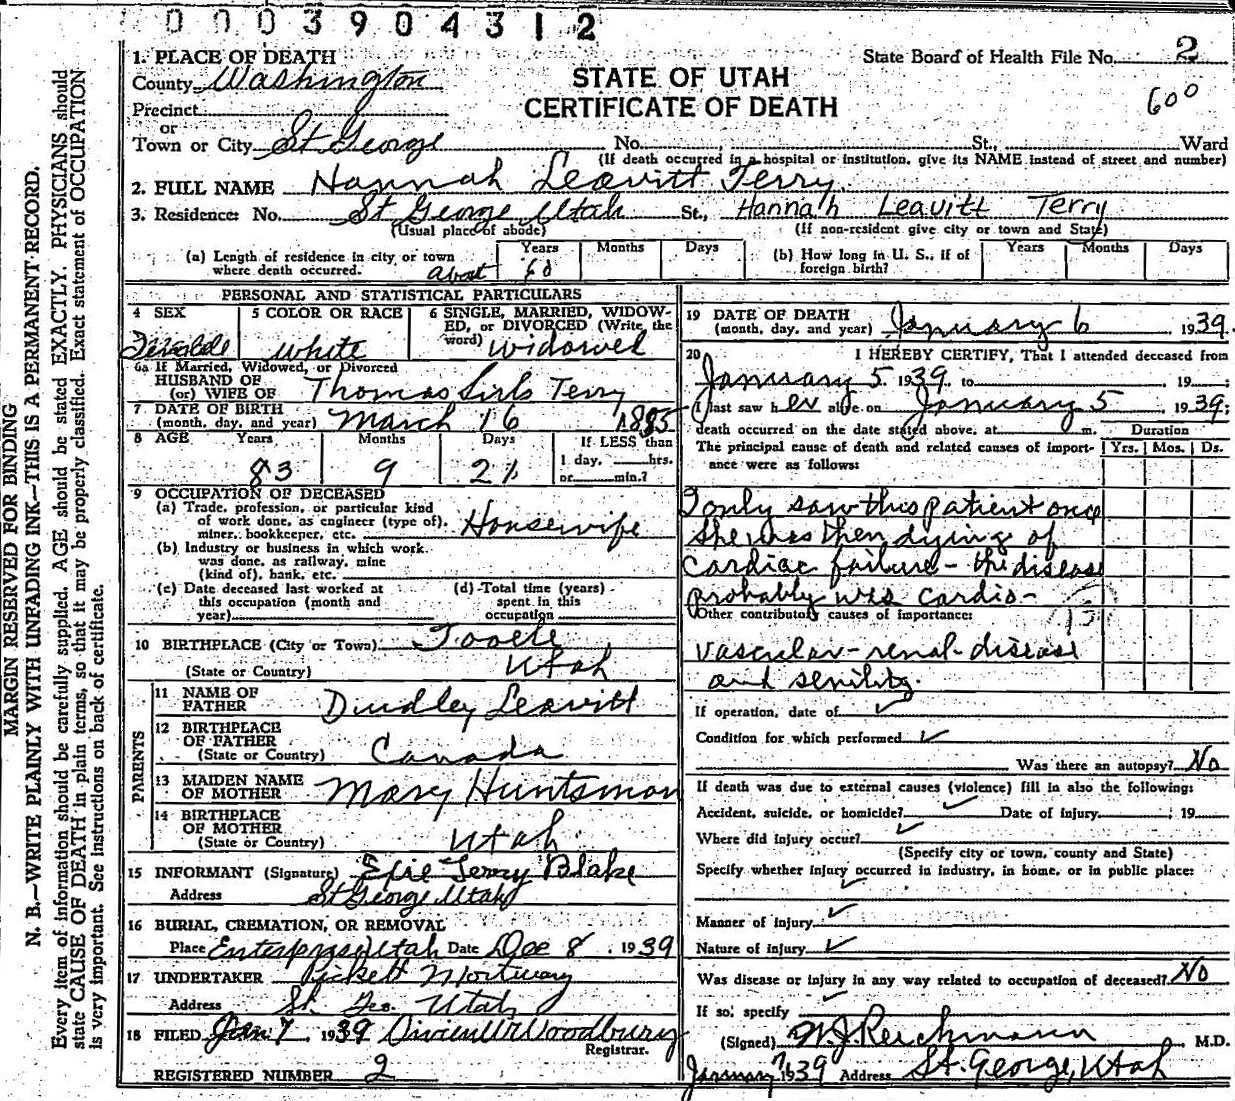 0003904312
1. PLACE OF DEATH
State Board of Health File No. 2
County Washington
STATE OF UTAH
600
Precinct
CERTIFICATE OF DEATH
or
Town or City St. George No. St., Ward
(If death occurred in a hospital or institution, give its NAME instead of street and number)
2. FULL NAME Hannah Leavitt Terry
3. Residence: No. St George Utah St., Hannah Leavitt Terry
(Usual place of abode) (If non-resident give city or town and State)
(a) Length of residence in city or town where death occurred. about Years 60 Months Days
(b) How long in U. S., if of foreign birth? Years Months Days
PERSONAL AND STATISTICAL PARTICULARS
4 SEX 5 COLOR OR RACE 6 SINGLE, MARRIED, WIDOW-
ED, or DIVORCED (Write the
word)
white widowed
6a If Married, Widowed, or Divorced
HUSBAND OF
(or) WIFE OF Thomas Sirls Terry
7 DATE OF BIRTH
(month, day, and year) March 16 1855
8 AGE Years Months Days If LESS than
83 9 21 1 day, hrs.
or min.?
9 OCCUPATION OF DECEASED
(a) Trade, profession, or particular kind
of work done, as engineer (type of),
miner, bookkeeper, etc. Housewife
(b) Industry or business in which work
was done, as railway, mine
(kind of), bank, etc.
(c) Date deceased last worked at
this occupation (month and
year)
(d) Total time (years)
spent in this
occupation
10 BIRTHPLACE (City or Town) Tooele
(State or Country) Utah
PARENTS
11 NAME OF
FATHER Dudley Leavitt
12 BIRTHPLACE
OF FATHER
(State or Country) Canada
13 MAIDEN NAME
OF MOTHER Mary Huntsman
14 BIRTHPLACE
OF MOTHER
(State or Country) Utah
15 INFORMANT (Signature) Efie Terry Blake
Address St George, Utah
16 BURIAL, CREMATION, OR REMOVAL
Place Enterprise Utah Date Dec 8, 1939
17 UNDERTAKER Pickett Mortuary
Address St. Geo. Utah
18 FILED Jan 7, 1939 Woodbury
Registrar.
REGISTERED NUMBER 2
19 DATE OF DEATH
(month, day, and year) January 6, 1939.
20 I HEREBY CERTIFY, That I attended deceased from
January 5, 1939, to 19 ;
I last saw her alive on January 5, 1939;
death occurred on the date stated above, at m.
Duration
The principal cause of death and related causes of import-
ance were as follows: Yrs. Mos. Ds.
I only saw this patient once
she was then dying of
cardiac failure - the disease
probably was cardio-
Other contributory causes of importance:
vascular-renal-disease
and senility.
If operation, date of
Condition for which performed
Was there an autopsy? No
If death was due to external causes (violence) fill in also the following:
Accident, suicide, or homicide? Date of injury ; 19
Where did injury occur?
(Specify city or town, county and State)
Specify whether injury occurred in industry, in home, or in public place:
Manner of injury
Nature of injury
Was disease or injury in any way related to occupation of deceased? No
If so, specify
(Signed) W.J. Reichmann M.D.
January 7, 1939 Address St. George, Utah
MARGIN RESERVED FOR BINDING
N. B.—WRITE PLAINLY WITH UNFADING INK—THIS IS A PERMANENT RECORD.
Every item of information should be carefully supplied. AGE should be stated EXACTLY. PHYSICIANS should
state CAUSE OF DEATH in plain terms, so that it may be properly classified. Exact statement of OCCUPATION
is very important. See instructions on back of certificate.